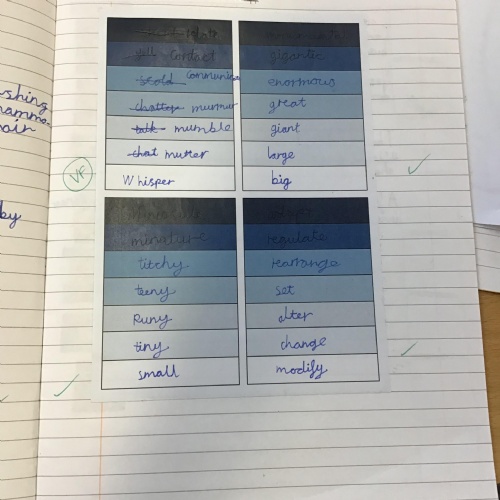 yell contact
scold communicate
chatter murmur
talk mumble
chat mutter
Whisper
gigantic
enormous
great
giant
large
big
miniature
titchy
teeny
Runy
tiny
small
regulate
rearrange
set
alter
change
modify
VF
by